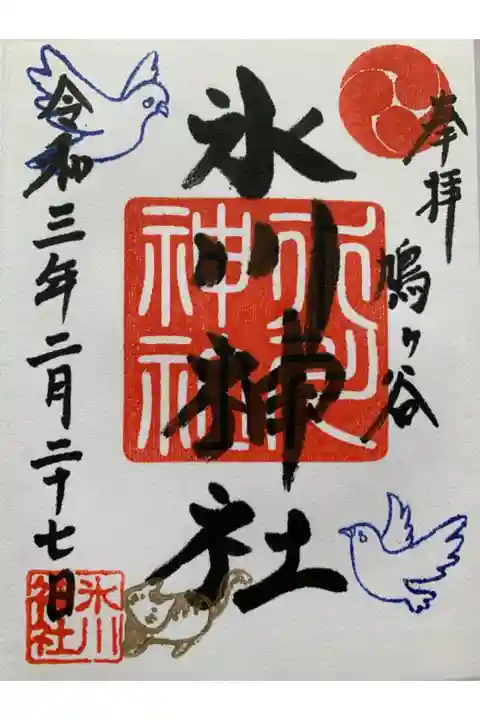 奉拝
鳩ヶ谷
氷川神社
氷川
神社
令和三年二月二十七日
氷川
神社